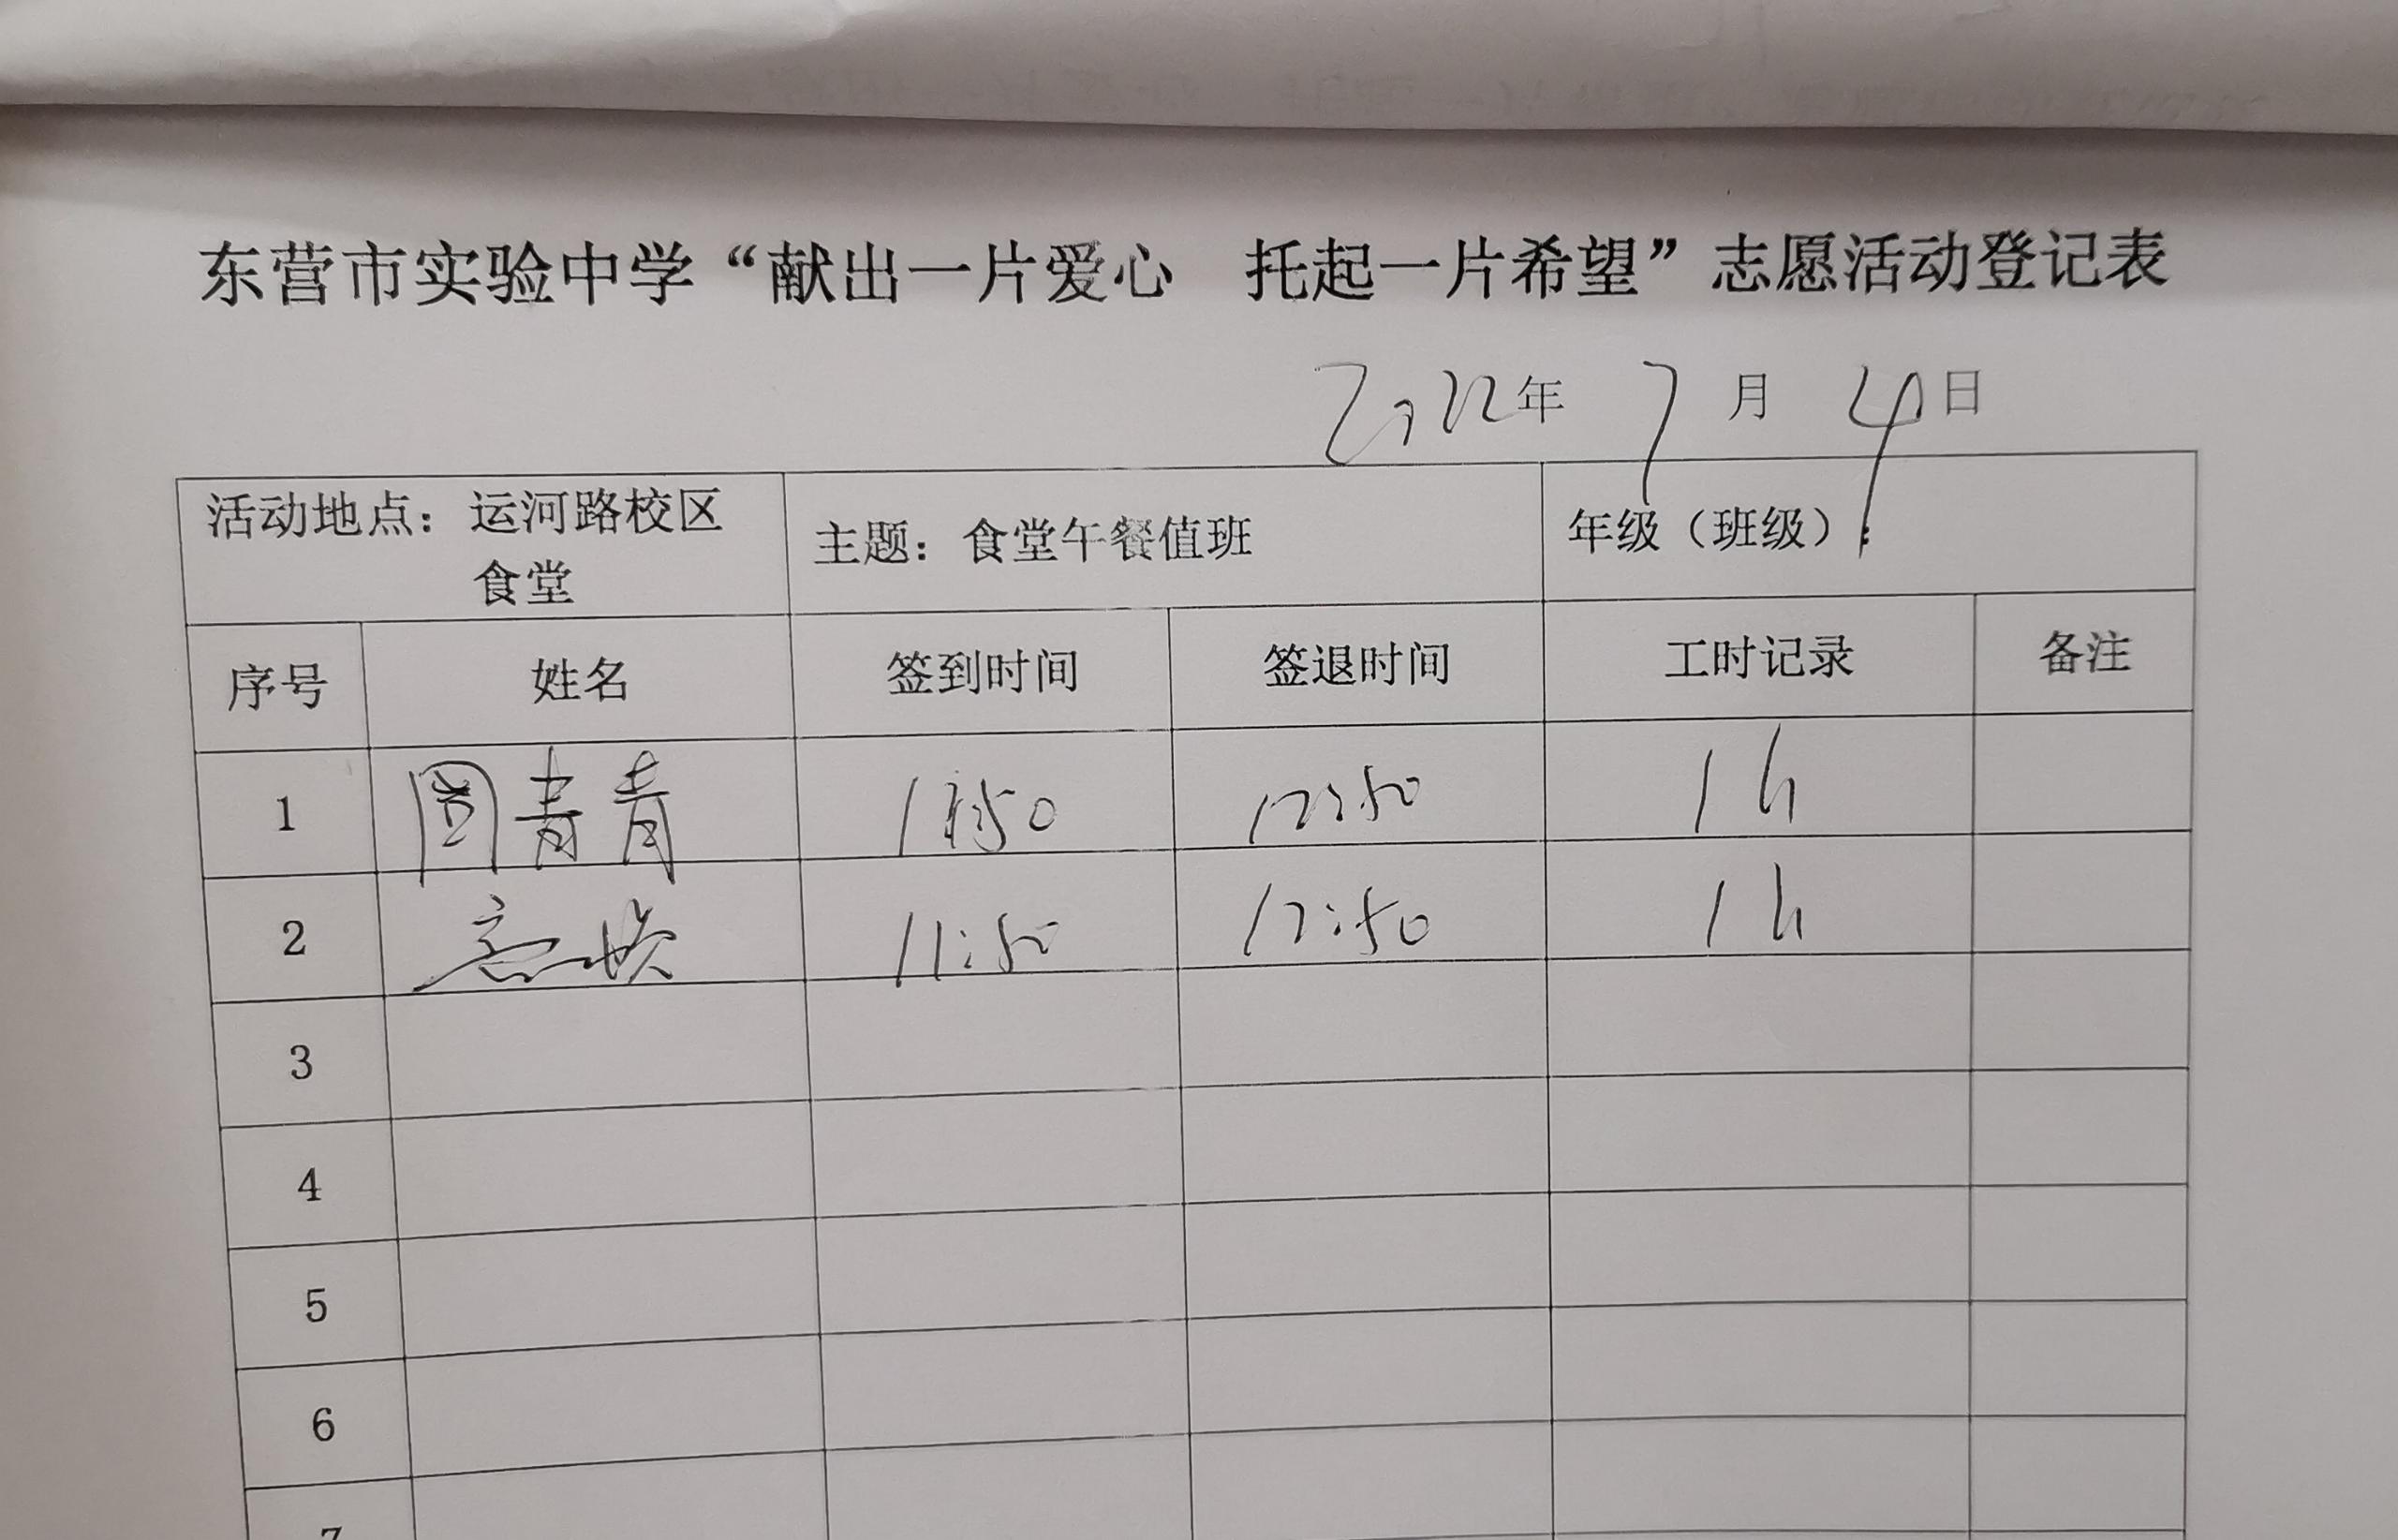 东营市实验中学“献出一片爱心 托起一片希望”志愿活动登记表
2022年 7月 4日
活动地点：运河路校区食堂 主题：食堂午餐值班 年级（班级）：
序号 姓名 签到时间 签退时间 工时记录 备注
1 青青 11:50 12:50 1h
2 11:50 12:50 1h
3
4
5
6
7